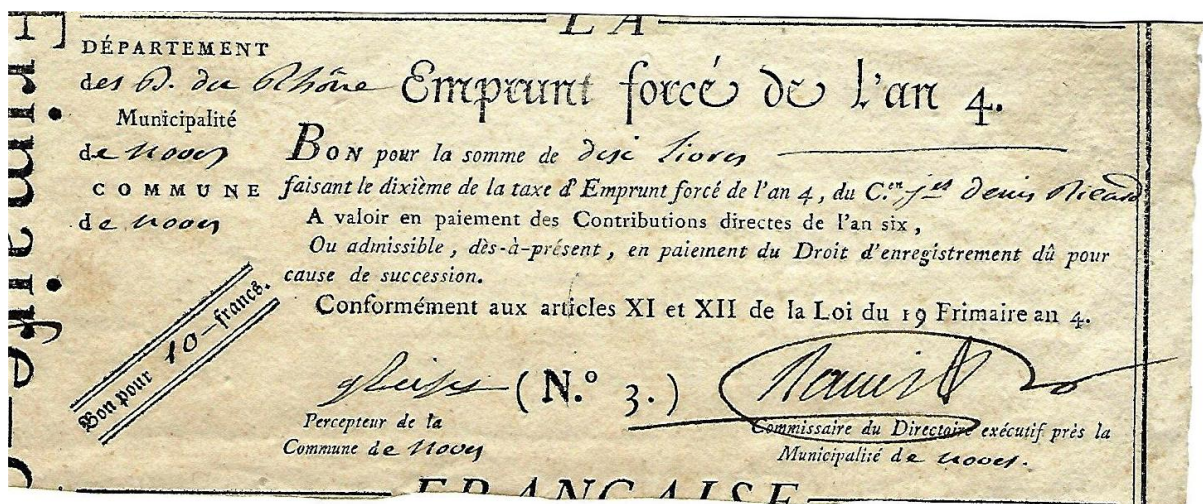 LA
DÉPARTEMENT
des B. du Rhône
Municipalité
de noves
COMMUNE
de noves
Emprunt forcé de l'an 4.
BON pour la somme de dix livres
faisant le dixième de la taxe d'Emprunt forcé de l'an 4, du C.en Denis Ricard
A valoir en paiement des Contributions directes de l'an six,
Ou admissible, dès-à-présent, en paiement du Droit d'enregistrement dû pour
cause de succession.
Conformément aux articles XI et XII de la Loi du 19 Frimaire an 4.
Bon pour 10—francs.
(N.° 3.)
Percepteur de la
Commune de noves
Commissaire du Directoire exécutif près la
Municipalité de noves.
FRANÇAISE